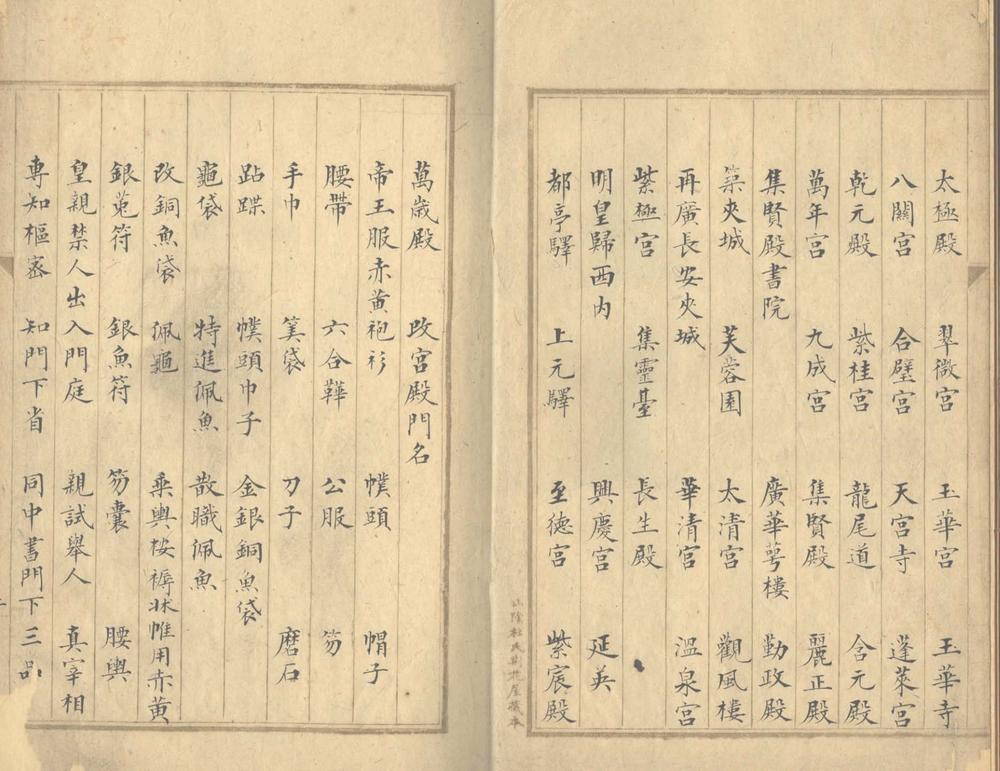 太極殿 翠微宮 玉華宮 玉華寺
八關宮 合璧宮 天宮寺 蓬萊宮
乾元殿 紫桂宮 龍尾道 含元殿
萬年宮 九成宮 集賢殿 麗正殿
集賢殿書院 廣華萼樓 勤政殿
築夾城 芙蓉園 太清宮 觀風樓
再廣長安夾城 華清宮 溫泉宮
紫極宮 集靈臺 長生殿
明皇歸西内 興慶宮 延英
都亭驛 上元驛 至德宮 紫宸殿
山陰杜氏荊花屋藏本
萬歲殿 改宮殿門名
帝王服赤黃袍衫 幞頭 帽子
腰帶 六合鞾 公服 笏
手巾 筭袋 刀子 磨石
跕蹀 幞頭巾子 金銀銅魚袋
龜袋 特進佩魚 散職佩魚
改銅魚袋 佩龜 乘輿桉褥牀帷用赤黃
銀菟符 銀魚符 笏囊 腰輿
皇親禁人出入門庭 親試舉人 真宰相
專知樞密 知門下省 同中書門下三品